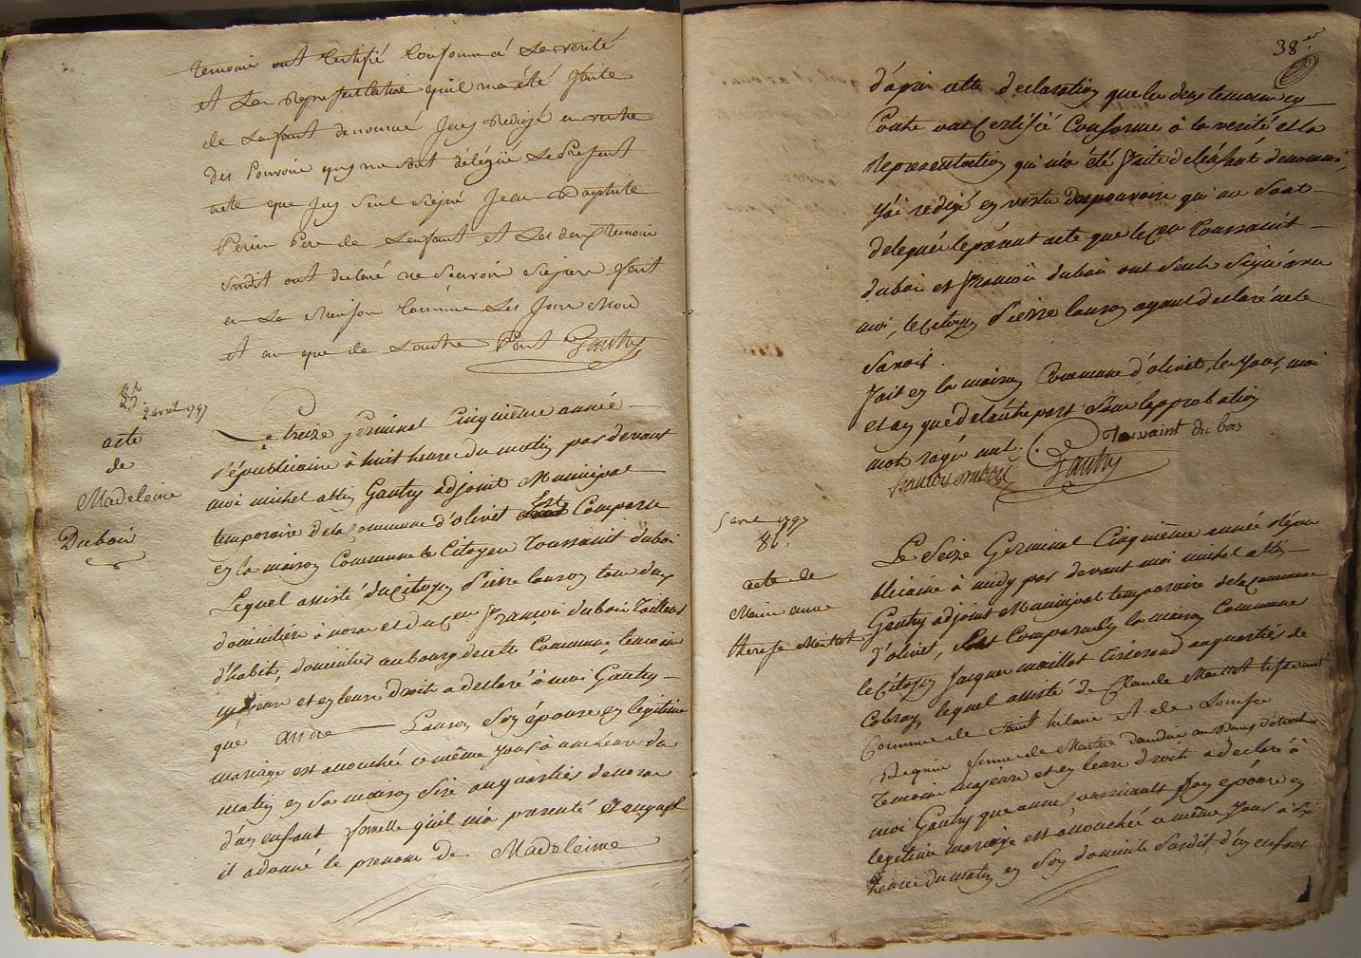 temoin ont Certifié Conforme á La verité
et La Representation quil ma été faite
de Lenfant denommé Jay Redigé en vertu
des Pouvoir quy me sont délégüé Le Present
acte que Jay Seul Signé Jean Baptiste
Perin Pere de Lenfant et Les deux Temoin
Susdit ont declaré ne Scavoir Signer fait
en La Maison Commune Les Jour Mois
et an que de Lautre Part Gautry
85
2 avril 1797
acte
de
Madeleine
Dubois
Le treize germinal Cinquieme année
républicaine à huit heure du matin par devant
moi michel Gautry adjoint Municipal
temporaire de la Commune d'olivet Est Comparu
en la maison Commune le Citoyen Toussaint dubois
Lequel assisté du Citoyen Pierre lauron tous deux
domiciliés à et du Cen francois dubois Tailleur
d'habits, domicilié au bourg de cette Commune, temoins
majeurs et en leurs Droits a declaré à moi Gautry
que anne Lauron Son épouse en legitime
mariage est accouchée ce même jour à une heure du
matin en Sa maison Sise au quartier de
d'un enfant femelle qu'il m'a presenté et auquel
il a donné le prenom de Madeleine
38
d'après cette declaration que les deux temoins cy
Contre ont Certifié Conforme à la verité et la
représentation qui m'a été faite de l'enfant denommé,
j'ai redigé en vertu des pouvoirs qui me Sont
delegués le présent acte que le Cen Toussaint
dubois et francois dubois ont Seuls Signé avec
moi, le Citoyen Pierre lauron ayant declaré ne le
Savoir.
fait en la maison Commune d'olivet, les jour, moi
et an que de l'autre part Sauf l'approbation
mot rayé nul. Toussaint du bois
francois dubois Gautry
5 avril 1797
86.
acte de
Marie anne
therese Maillot
Le Seize Germinal Cinquième année répu
blicaine à midy par devant moi michel
Gautry adjoint Municipal temporaire de la Commune
d'olivet, Est Comparu en la maison Commune
le Citoyen Jacque maillot au quartier de
Cobray, lequel assisté de Claude Maillot
Commune de Saint hilaire et de
femme de
Temoins majeurs et en leurs droits a declaré à
moi Gautry que anne Son épouse en
legitime mariage est accouchée ce même jour à Six
heures du matin en Son domicile Susdit d'un enfant